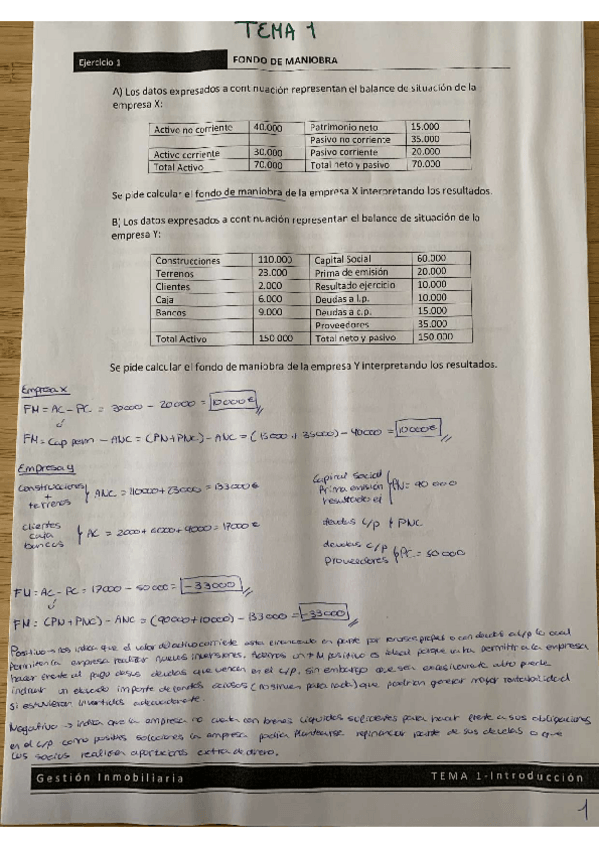 TEMA 1
Ejercicio 1 FONDO DE MANIOBRA
A) Los datos expresados a continuación representan el balance de situación de la
empresa X:
Activo no corriente 40.000 Patrimonio neto 15.000
Pasivo no corriente 35.000
Activo corriente 30.000 Pasivo corriente 20.000
Total Activo 70.000 Total neto y pasivo 70.000
Se pide calcular el fondo de maniobra de la empresa X interpretando los resultados.
B) Los datos expresados a continuación representar el balance de situación de la
empresa Y:
Construcciones 110.000 Capital Social 60.000
Terrenos 23.000 Prima de emisión 20.000
Clientes 2.000 Resultado ejercicio 10.000
Caja 6.000 Deudas a l.p. 10.000
Bancos 9.000 Deudas a c.p. 15.000
Proveedores 35.000
Total Activo 150.000 Total neto y pasivo 150.000
Se pide calcular el fondo de maniobra de la empresa Y interpretando los resultados.
Empresa X
FM = AC - PC = 30000 - 20000 = 10000 €
FM = Cap perm - ANC = (PN + PNC) - ANC = (15000 + 35000) - 40000 = 10000 €
Empresa Y
Construcciones + terrenos } ANC = 110000 + 23000 = 133000 €
Capital social Prima emisión resultado ej } PN = 90 000
clientes caja bancos } AC = 2000 + 6000 + 9000 = 17000 €
deudas c/p } PNC
deudas c/p Proveedores } PC = 50000
FM = AC - PC = 17000 - 50000 = -33000
FM = (PN + PNC) - ANC = (90000 + 10000) - 133 000 = -33000
Positivo → nos indica que el valor del activo corriente esta financiado en parte por fondos propios o con deudas a l/p lo cual
permitiría empresa realizar nuevas inversiones. un FM positivo es ideal porque va a permitir a la empresa
hacer frente al pago de sus deudas que vencen en el c/p, sin embargo que sea excesivamente alto puede
indicar un elevado importe de fondos ociosos (no sirven para nada) que podrían generar mayor rentabilidad
si estuvieran invertidos adecuadamente.
Negativo → indica que la empresa no cuenta con bienes líquidos suficientes para hacer frente a sus obligaciones
en el c/p como posibles soluciones la empresa podría plantearse refinanciar parte de sus deudas o que
los socios realicen aportaciones extra de dinero.
Gestión Inmobiliaria TEMA 1-Introducción
1